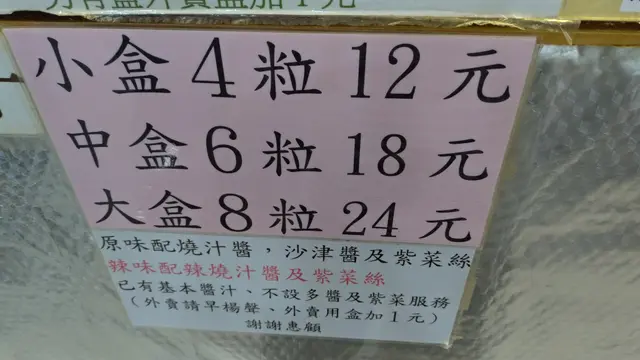 另有盒外賣盒加1元
小盒4粒12元
中盒6粒18元
大盒8粒24元
原味配燒汁醬，沙津醬及紫菜絲
辣味配辣燒汁醬及紫菜絲
已有基本醬汁、不設多醬及紫菜服務
（外賣請早楊聲、外賣用盒加1元）
謝謝惠顧